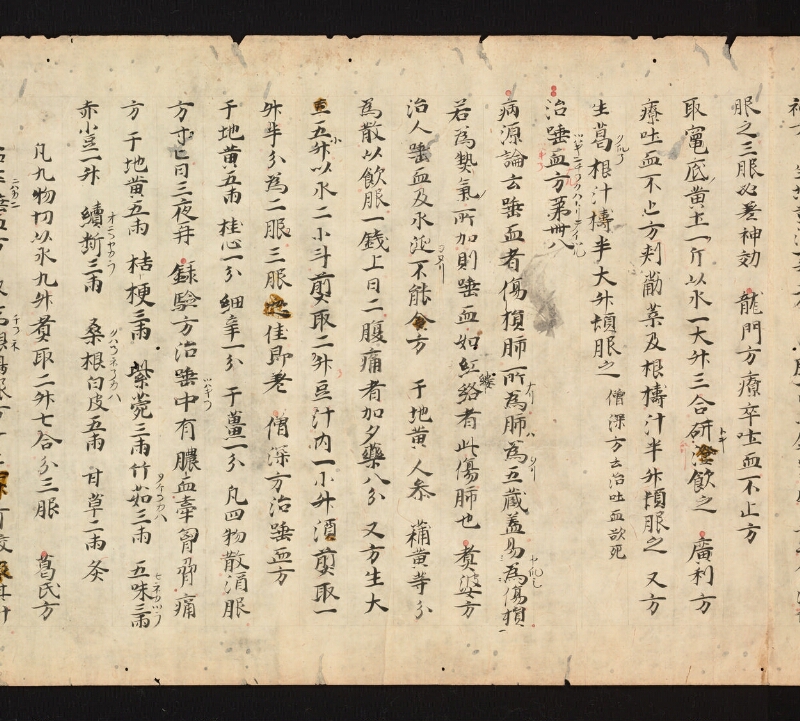 服之三服必差神効 龍門方療卒吐血不止方
取竃底黄土一斤以水一大升三合研澄飲之 廣利方
療吐血不止方刾薊菜及根擣汁半升頓服之 又方
生葛根汁擣半大升頓服之 僧深方云治吐血欲死
治唾血方第卌八
病源論云唾血者傷損肺所為肺為五藏盖易為傷損
若為熱氣所加則唾血如紅縷者此傷肺也 耆婆方
治人唾血及水涎不能食方 干地黄 人参 蒲黄等分
為散以飲服一錢上日二腹痛者加夕藥八分 又方生大
豆五升以水二小斗煎取二升豆汁内一小升酒煎取一
升半分為二服三服㝡佳即差 僧深方治唾血方
干地黄五両 桂心一分 細辛一分 干薑一分 凡四物散酒服
方寸匕日三夜再 録驗方治唾中有膿血牽胸脅痛
方 干地黄五両 桔梗三両 紫菀三両 竹茹三両 五味三両
赤小豆一升 續断三両 桑根白皮五両 甘草二両炙
凡九物切以水九升煑取二升七合分三服 葛氏方